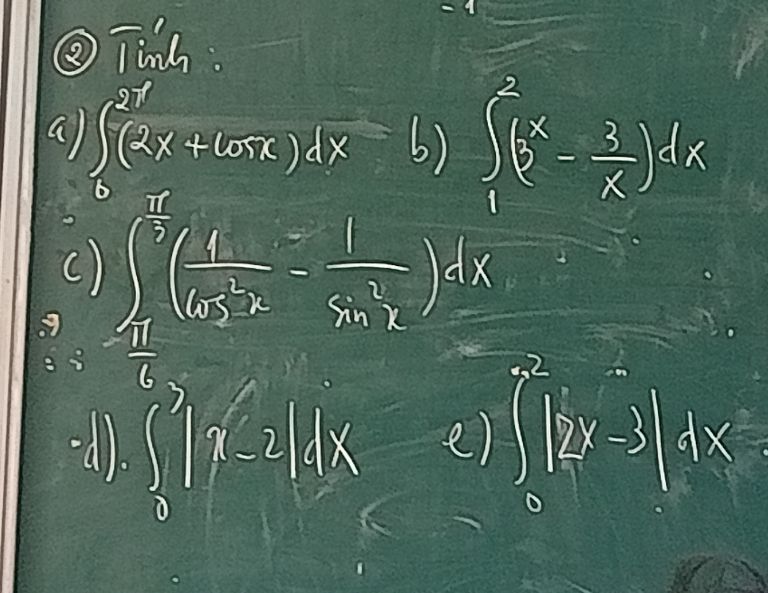 - 1
② Tính :
a) ∫₀^{2π} (2x + cosx) dx b) ∫₁² (3ˣ - 3/x) dx
c) ∫_{π/6}^{π/3} (1/cos²x - 1/sin²x) dx
d). ∫₀³ |x - 2| dx e) ∫₀² |2x - 3| dx